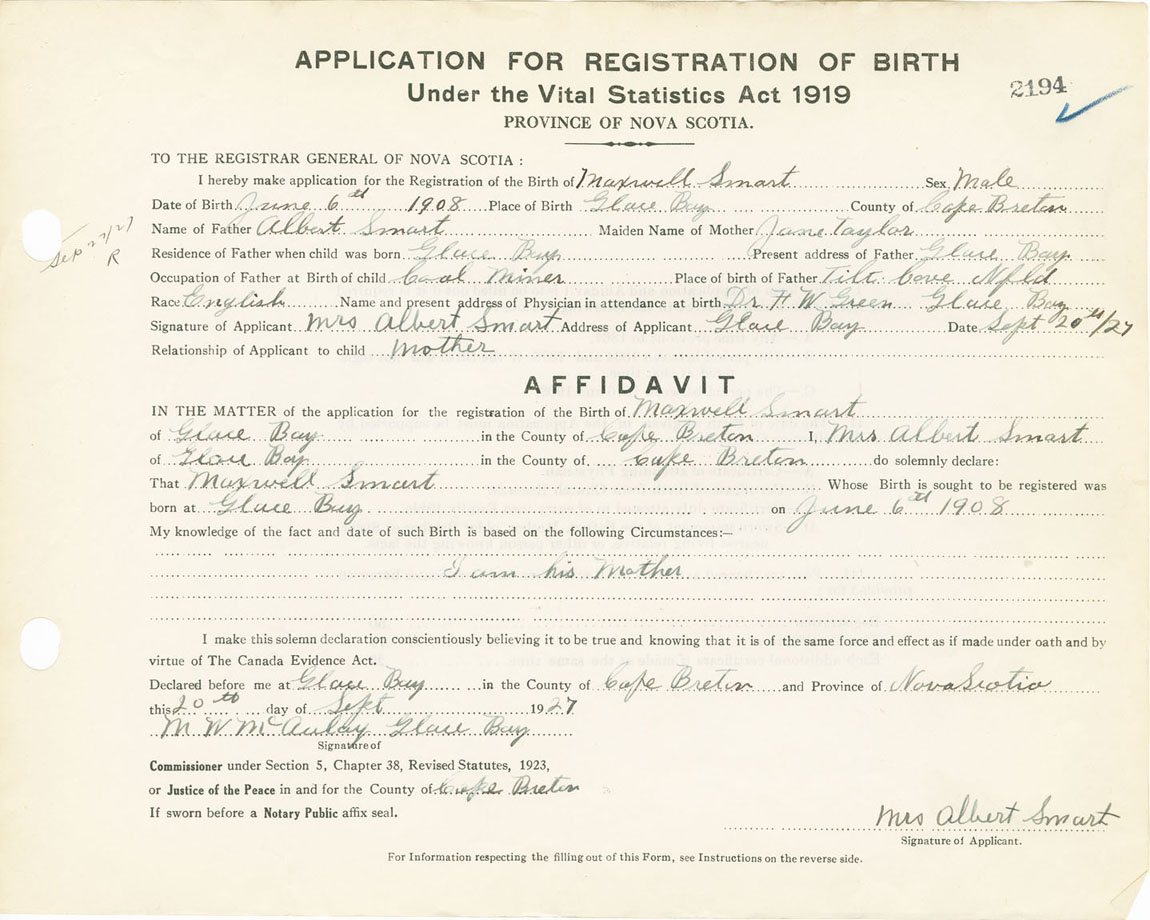 APPLICATION FOR REGISTRATION OF BIRTH
Under the Vital Statistics Act 1919
2194
PROVINCE OF NOVA SCOTIA.
TO THE REGISTRAR GENERAL OF NOVA SCOTIA :
I hereby make application for the Registration of the Birth of Maxwell Smart Sex Male
Date of Birth June 6th 1908 Place of Birth Glace Bay County of Cape Breton
Name of Father Albert Smart Maiden Name of Mother Jane Taylor
Sep 22/27
R
Residence of Father when child was born Glace Bay Present address of Father Glace Bay
Occupation of Father at Birth of child Coal Miner Place of birth of Father Tilt Cove Nfld
Race English Name and present address of Physician in attendance at birth Dr F W Green Glace Bay
Signature of Applicant Mrs Albert Smart Address of Applicant Glace Bay Date Sept 20th/27
Relationship of Applicant to child Mother
AFFIDAVIT
IN THE MATTER of the application for the registration of the Birth of Maxwell Smart
of Glace Bay in the County of Cape Breton I, Mrs Albert Smart
of Glace Bay in the County of Cape Breton do solemnly declare:
That Maxwell Smart Whose Birth is sought to be registered was
born at Glace Bay on June 6th 1908
My knowledge of the fact and date of such Birth is based on the following Circumstances:—
I am his Mother
I make this solemn declaration conscientiously believing it to be true and knowing that it is of the same force and effect as if made under oath and by
virtue of The Canada Evidence Act.
Declared before me at Glace Bay in the County of Cape Breton and Province of Nova Scotia
this 20th day of Sept 1927
M W McAulay Glace Bay
Signature of
Commissioner under Section 5, Chapter 38, Revised Statutes, 1923,
or Justice of the Peace in and for the County of Cape Breton
If sworn before a Notary Public affix seal.
Mrs Albert Smart
Signature of Applicant.
For Information respecting the filling out of this Form, see Instructions on the reverse side.